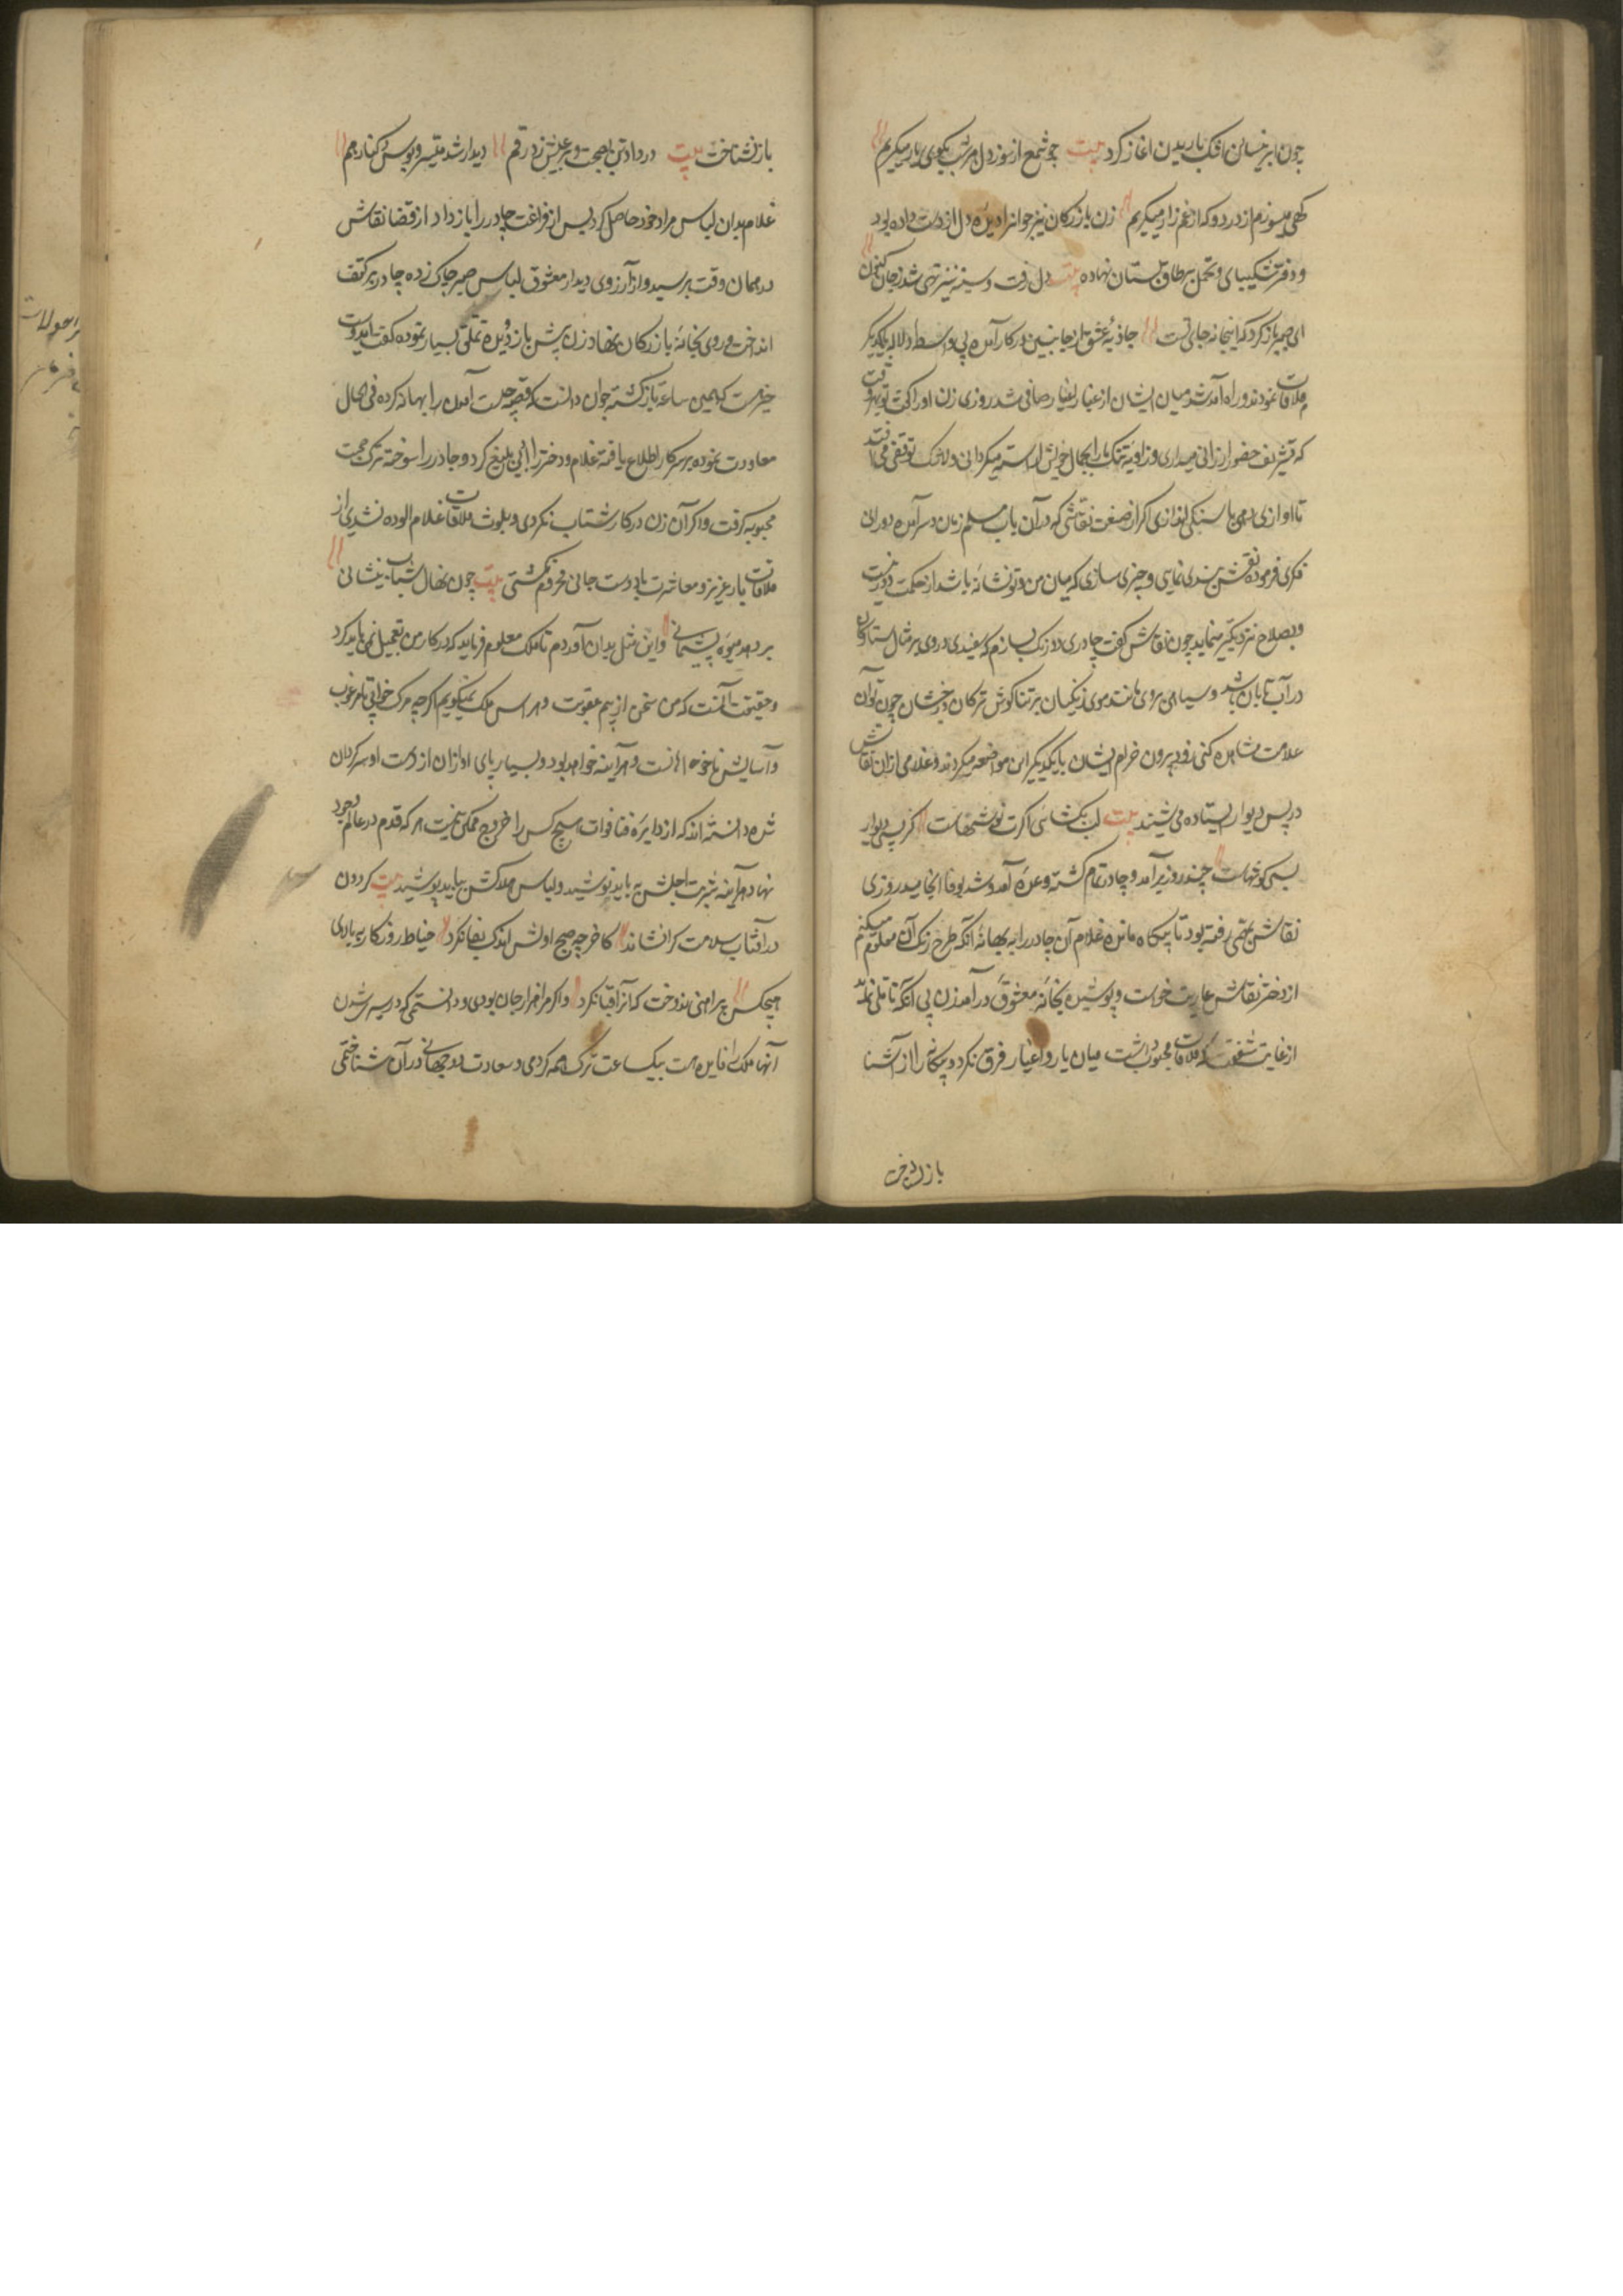 چون ابر نیسان اشک باریدن آغاز کرد بیت چو شمع از سوز دل هر شب بکوی یار میکریم
کهی میسوزم از درد و که از غم زار میکریم زن بازرکان نیز جوانرا دیده دل از دست داده بود
و دفتر شکیبای و تحمل بر طاق نسیان نهاده بیت دل رفت و سینه نیز تهی شد ز جان کنون
ای صبر باز کرد که اینجا نه جای تست جاذبه عشق از جانبین در کار آمده بی واسطه دلاله بیکدیکر
ملاقات نمودند و راه آمد شد میان ایشان از غبار اغیار صافی شد روزی زن او را کفت تو بهر وقت
که تشریف حضور ارزانی میداری و زاویه تنک ما را بجمال خویش آراسته میکردانی ولا شک توقفی می افتد
تا آوازی دهی یا سنکی اندازی اکر از صنعت نقاشی که در آن باب مسلم زمان و سرآمده دورانی
فکری فرموده نقش بندی نمایی و چیزی سازی که میان من و تو نشانه باشد از حکمت دور نیست
و بصلاح نزدیکتر مینماید جوان نقاش کفت چادری دو رنک بسازم که سفیدی در وی بر مثال ستاره
در آب تابان باشد و سیاهی بروی مانند موی زنکیان بر بناکوش ترکان درخشان چون تو آن
علامت مشاهده کنی زود بیرون خرام ایشان با یکدیکر این مواضعه میکردند و غلامی از آن نقاش
در پس دیوار ایستاده می شنید بیت لب بکشائی اکرت نوشهاست کز پس دیوار
بسی کوشهاست چند روز برآمد و چادر تمام کشته وعده آمد و شد بوفا انجامید روزی
نقاش بمهمی رفته بود تا بیکاه مانده غلام آن چادر را به بهانه آنکه طرح رنک آن معلوم میکنم
از دختر نقاش عاریت خواست و پوشیده بخانه معشوقه درآمد زن بی آنکه تأملی کند
از غایت شغفی که بملاقات محبوب داشت میان یار و اغیار فرق نکرد و بیکانه را از آشنا
باز نشناخت
باز نشناخت بیت در دادتن بصحبت و بر عیش زد رقم دیدار شد میسر و بوس و کنار هم
غلام بدان لباس مراد خود حاصل کرد پس از فراغت چادر را باز داد از قضا نقاش
در همان وقت برسید و از آرزوی دیدار معشوق لباس صبر چاک زده چادر بر کتف
انداخت و روی بخانه بازرکان نهاد زن پیش باز دویده تملق بسیار نموده کفت ای دوست
خیرست که همین ساعت بازکشته جوان دانست که قصه چیست آمدن را بهانه کرده فی الحال
معاودت نموده بر سر کار اطلاع یافته غلام و دختر را ادبی بلیغ کرد و چادر را سوخته ترک صحبت
محبوبه کرفت و اکر آن زن در کار شتاب نکردی و بلوث ملاقات غلام آلوده نشدی از
ملاقات یار عزیز و معاشرت با دوست جانی محروم نکشتی بیت چون نهال شتاب بنشانی
بر دهد میوه پشیمانی و این مثل بدان آوردم تا ملک معلوم فرماید که در کار من تعجیل نمی باید کرد
و حقیقت آنست که من سخن از بیم عقوبت و هراس ملک نمیکویم اکرچه مرک خوابی نامرغوب
و آسایش ناخوهانست و هر آینه خواهد بود و بسیار پای آوازان از دست او سرکردان
شده دانسته اند که از دایره فنا و فوات هیچ کس را خروج ممکن نیست هر که قدم در عالم وجود
نهاد هر آینه شربت اجلش بباید نوشید و لباس هلاکش بباید پوشید بیت کردون
در آفتاب سلامت کرا نشاند کاخر چو صبح اولش اندک بقا نکرد خیاط روزکار ببالای
هیچکس پیراهنی ندوخت که آنرا قبا نکرد و اکر مرا هزار جان بودی و دانستمی که در سپری شدن
آنها ملک را فایده است بیک ساعت ترک همه کردمی و سعادت دو جهانی در آن شناختمی